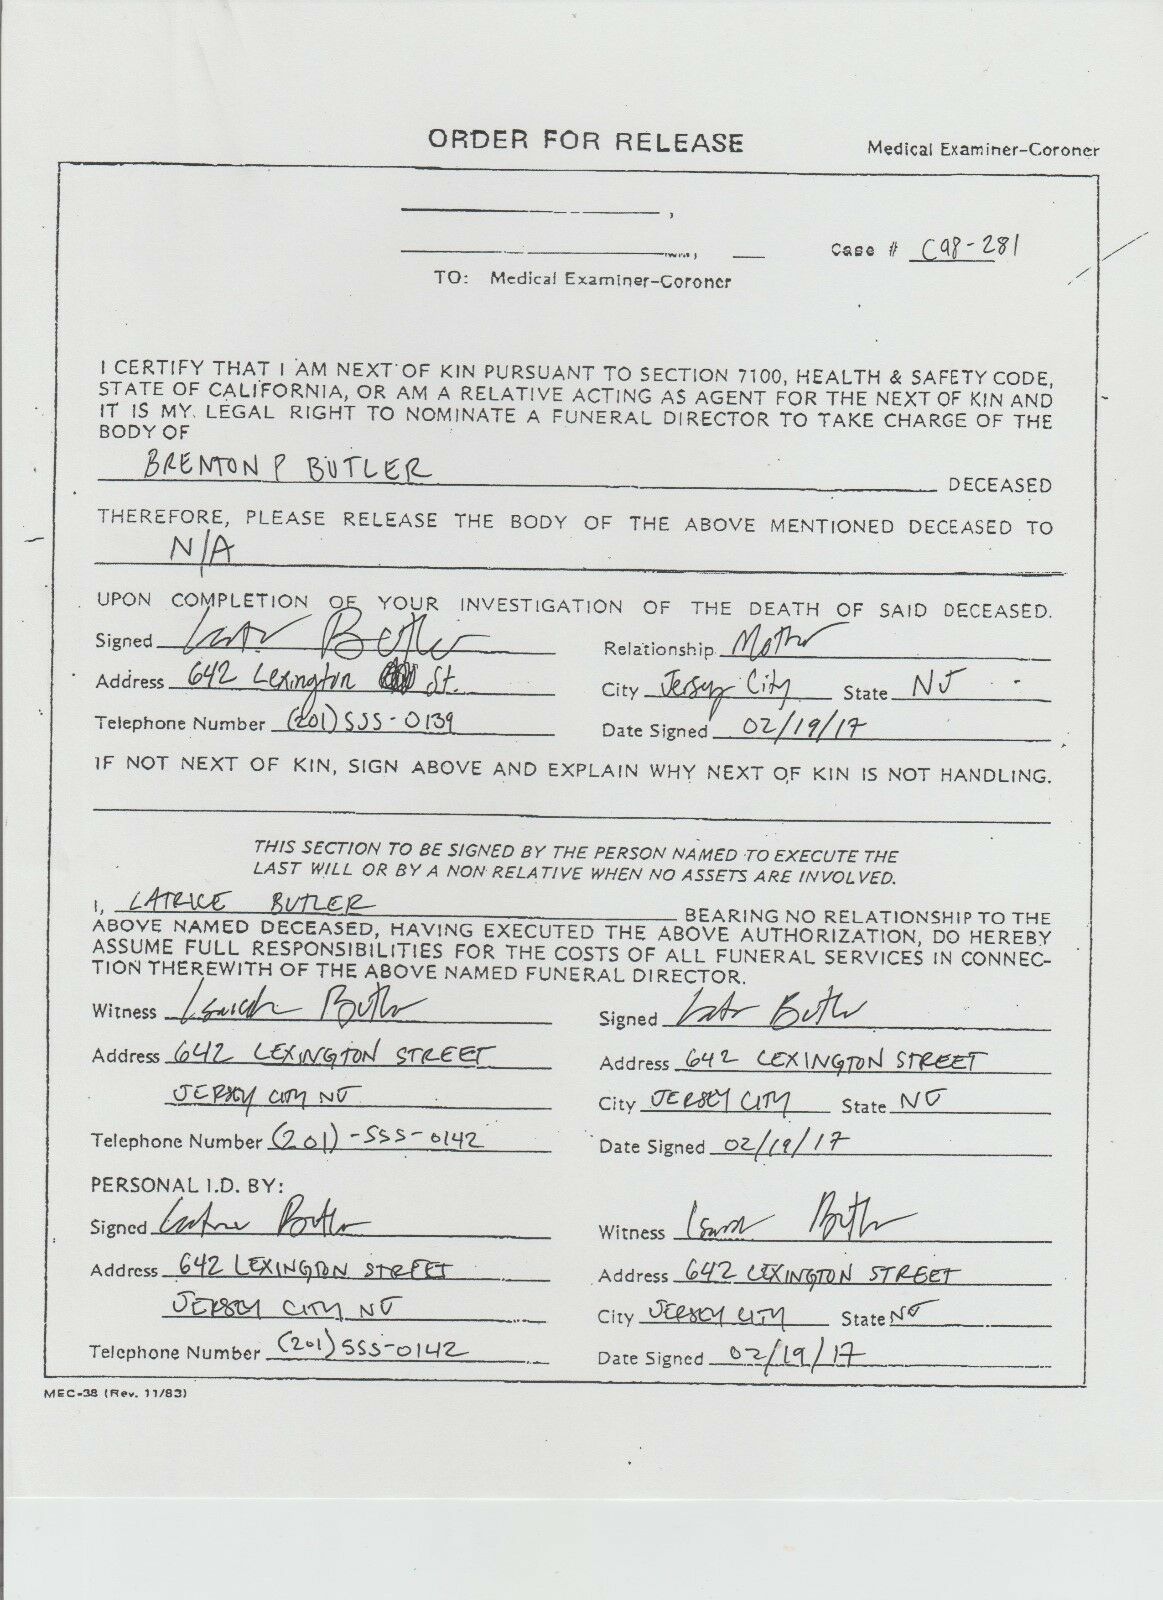 ORDER FOR RELEASE
Medical Examiner-Coroner
Case # C98-281
TO: Medical Examiner-Coroner
I CERTIFY THAT I AM NEXT OF KIN PURSUANT TO SECTION 7100, HEALTH & SAFETY CODE,
STATE OF CALIFORNIA, OR AM A RELATIVE ACTING AS AGENT FOR THE NEXT OF KIN AND
IT IS MY LEGAL RIGHT TO NOMINATE A FUNERAL DIRECTOR TO TAKE CHARGE OF THE
BODY OF
BRENTON P BUTLER DECEASED
THEREFORE, PLEASE RELEASE THE BODY OF THE ABOVE MENTIONED DECEASED TO
N/A
UPON COMPLETION OF YOUR INVESTIGATION OF THE DEATH OF SAID DECEASED.
Signed Butler Relationship Mother
Address 642 Lexington St. City Jersey City State NJ
Telephone Number (201) 555-0139 Date Signed 02/19/17
IF NOT NEXT OF KIN, SIGN ABOVE AND EXPLAIN WHY NEXT OF KIN IS NOT HANDLING.
THIS SECTION TO BE SIGNED BY THE PERSON NAMED TO EXECUTE THE
LAST WILL OR BY A NON RELATIVE WHEN NO ASSETS ARE INVOLVED.
I, LATRICE BUTLER BEARING NO RELATIONSHIP TO THE
ABOVE NAMED DECEASED, HAVING EXECUTED THE ABOVE AUTHORIZATION, DO HEREBY
ASSUME FULL RESPONSIBILITIES FOR THE COSTS OF ALL FUNERAL SERVICES IN CONNEC-
TION THEREWITH OF THE ABOVE NAMED FUNERAL DIRECTOR.
Witness Isaiah Butler Signed Butler
Address 642 LEXINGTON STREET Address 642 LEXINGTON STREET
JERSEY CITY NJ City JERSEY CITY State NJ
Telephone Number (201)-555-0142 Date Signed 02/19/17
PERSONAL I.D. BY:
Signed Latrice Butler Witness Butler
Address 642 LEXINGTON STREET Address 642 LEXINGTON STREET
JERSEY CITY NJ City JERSEY CITY State NJ
Telephone Number (201) 555-0142 Date Signed 02/19/17
MEC-38 (Rev. 11/83)